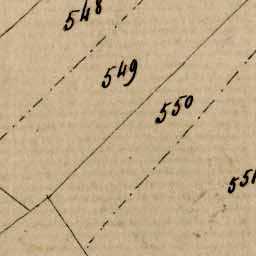 548
549
550
551